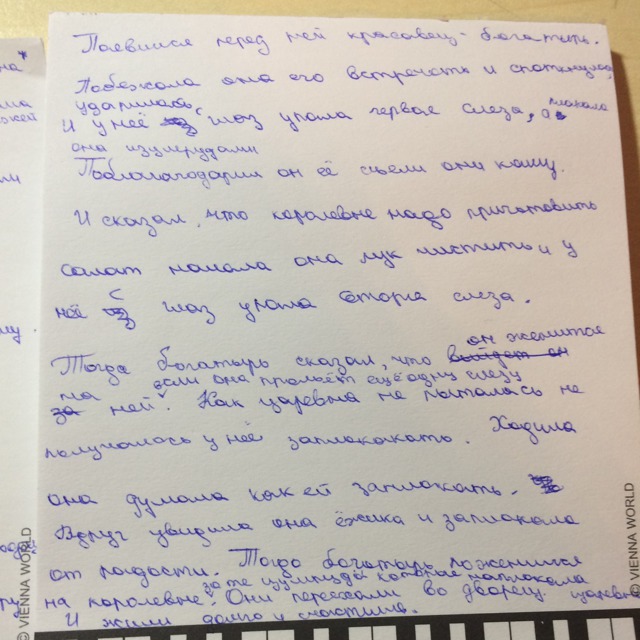 Паевился перед ней красавец-богатырь.
Побежала она его встречать и споткнулась,
ударилась,
И у неё из глаз упала первая слеза, а плакала
она изумрудами
Поблагодарил он её съели они кашу.
И сказал, что королевне надо приготовить
салат начала она лук чистить и у
неё с глаз упала вторая слеза.
он женится
Тогда богатырь сказал, что выйдет он
если она прольёт ещё одну слезу
на за ней. Как царевна не пыталась не
получалось у неё заплакакать. Ходила
она думала как ей заплакать.
Вдруг увидила она ёжика и заплакала
от радости. Тогда богатырь поженился
за те изумруды которые наплакала
на королевне. Они переехали во дворец царевна
И жили долго и счастливо.
© VIENNA WORLD
© VIENNA WORLD